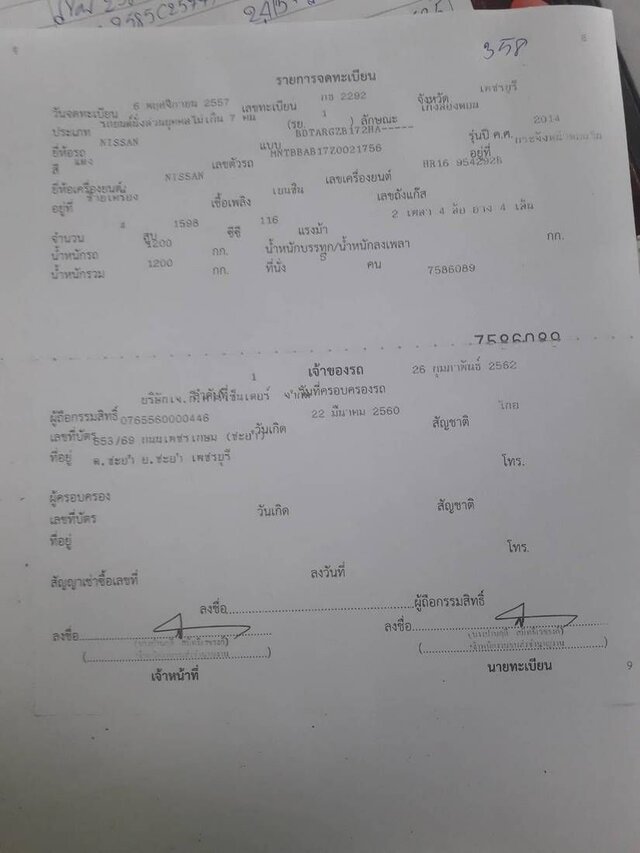 358
8
รายการจดทะเบียน
วันจดทะเบียน 6 พฤศจิกายน 2557 เลขทะเบียน กธ 2292 จังหวัด เพชรบุรี
ประเภท รถยนต์นั่งส่วนบุคคลไม่เกิน 7 คน (รย. 1 ) ลักษณะ เก๋งสองตอน
ยี่ห้อรถ NISSAN แบบ BDTARGZB17ZHA----- รุ่นปี ค.ศ. 2014
สี แดง เลขตัวรถ MNTBBAB17Z0021756 อยู่ที่
ยี่ห้อเครื่องยนต์ NISSAN เลขเครื่องยนต์ HR16 954292B
อยู่ที่ ซ้ายเครื่อง เชื้อเพลิง เบนซิน เลขถังแก๊ส
จำนวน 4 สูบ 1598 ซีซี 116 แรงม้า 2 เพลา 4 ล้อ ยาง 4 เส้น
น้ำหนักรถ 1200 กก. น้ำหนักบรรทุก/น้ำหนักลงเพลา กก.
น้ำหนักรวม 1200 กก. ที่นั่ง 5 คน 7586089
7586089
1 เจ้าของรถ 26 กุมภาพันธ์ 2562
วันที่ครอบครองรถ
ผู้ถือกรรมสิทธิ์ บริษัทเจ.
เลขที่บัตร 0765560000446 วันเกิด 22 มีนาคม 2560 สัญชาติ ไทย
ที่อยู่ 853/69 ถนนเพชรเกษม (ชะอำ) โทร.
ต.ชะอำ อ.ชะอำ เพชรบุรี
ผู้ครอบครอง
เลขที่บัตร วันเกิด สัญชาติ
ที่อยู่ โทร.
สัญญาเช่าซื้อเลขที่ ลงวันที่
ลงชื่อ ผู้ถือกรรมสิทธิ์
ลงชื่อ ลงชื่อ
เจ้าหน้าที่ นายทะเบียน
9